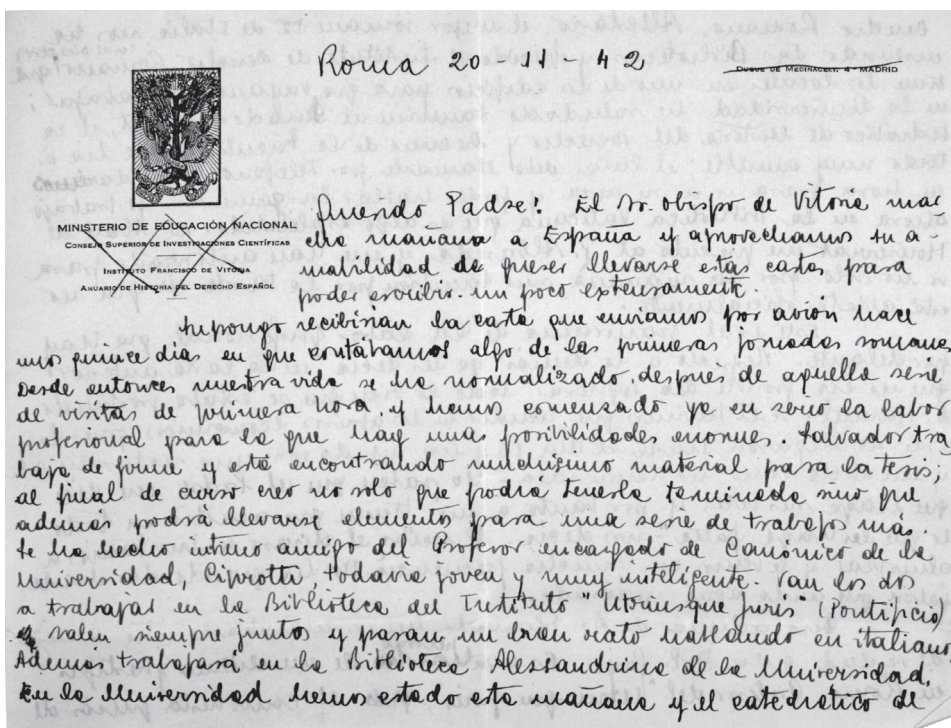 Roma 20-11-42
DUQUE DE MEDINACELI, 4 - MADRID
MINISTERIO DE EDUCACIÓN NACIONAL
CONSEJO SUPERIOR DE INVESTIGACIONES CIENTÍFICAS
INSTITUTO FRANCISCO DE VITORIA
ANUARIO DE HISTORIA DEL DERECHO ESPAÑOL
Querido Padre: El Sr. obispo de Vitoria mar
cha mañana a España y aprovechamos su a-
mabilidad de querer llevarse estas cartas para
poder escribir un poco extensamente.
Supongo recibirían la carta que enviamos por avión hace
unos quince días en que contábamos algo de las primeras jornadas romanas
Desde entonces nuestra vida se ha normalizado después de aquella serie,
de visitas de primera hora, y hemos comenzado ya en serio la labor
profesional para la que hay unas posibilidades enormes. Salvador tra
baja de firme y está encontrando muchísimo material para la tesis;
al final de curso creo no solo que podrá tenerla terminada sino que
además podrá llevarse elementos para una serie de trabajos más.
Se ha hecho íntimo amigo del Profesor encargado de Canónico de la
Universidad Ciprotti, todavía joven y muy inteligente. Van los dos
a trabajar en la Biblioteca del Instituto "Utriusque juris" (Pontificio)
salen siempre juntos y pasan un buen rato hablando en italiano
Además trabajará en la Biblioteca Alessandrina de la Universidad.
En la Universidad hemos estado esta mañana y el catedrático de